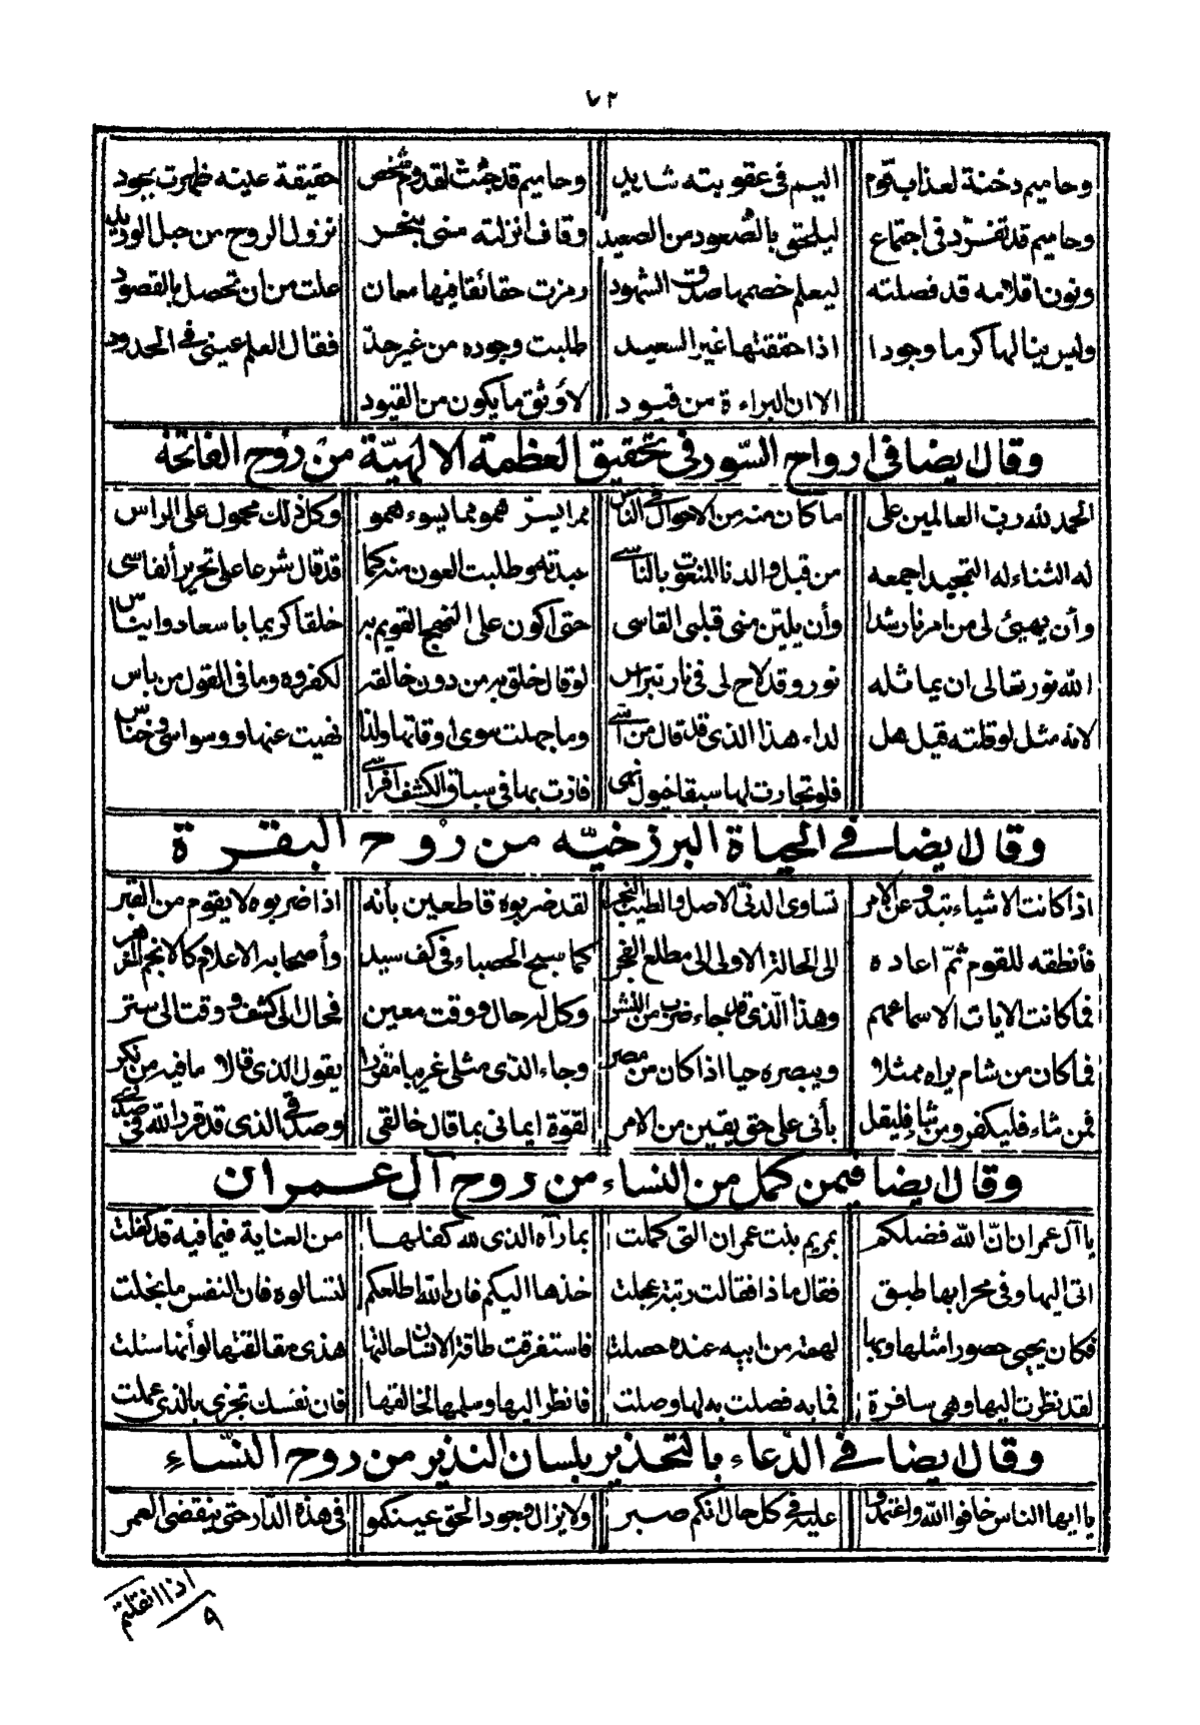 ٧٢
وحاميم دخنة لعذاب قوم اليم فى عقوبته شديد وحاميم قد جئت لقدوم شخص حقيقة عينه ظهرت بجود
وحاميم قد تفرّد فى اجتماع ليلتحق بالصعود من الصعيد وقاف انزلته منى بنحر نزول الروح من حبل الوريد
ونون اقلامه قد فصلته ليعلم خصمها صدق الشهود رمزت حقائقا فيها معان علت من ان تحصل بالقصود
وليس ينالها كرما وجودا اذا حققتها غير السعيد طلبت وجوده من غير حدّ فقال العلم عينى فى الحدود
الا ان البراءة من قيود لأوثق ما يكون من القيود
وقال ايضا فى ارواح السّور فى تحقيق العظمة الالهيّة من رُوح الفاتحة
الحمد لله ربّ العالمين على ما كان منه من الاحوال فى الناس مما يسرّ همو مما يسوءهمو وكل ذلك محمول على الراس
له الثناء له التمجيد اجمعه من قبل والدنا المنعوت بالناسى عبدته وطلبت العون منه كما قد قال شرعا على تحرير ألفاسى
وأن يهيئ لى من امرنا رشدا وأن يليّن منى قلبى القاسى حتى اكون على النهج القويم به خلقا كريما باسعاد وايناس
الله نور تعالى ان يماثله نور وقد لاح لى فى نار نبراس لو قال خلق به من دون خالقه لكفروه وما فى القول من باس
لانه مثل لو قلته قيل هل لداء هذا الذى قد قال من آسى وما جهلت سوى اوقاتها ولذا نفيت عنها ووسواسى وخناس
فلو تجارت لها سبقا خيول نهى فازت بها فى سباق الكشف افراسى
وقال ايضا فى الحياة البرزخيّه من رُوح البقرة
اذا كانت الاشياء تبدو عن الامر تساوى الدنىّ الاصل والطيب النجر لقد ضربوه قاطعين بأنه اذا ضربوه لا يقوم من القبر
فأنطقه للقوم ثمّ اعاده الى الحالة الاولى الى مطلع الفجر كما سبح الحصباء فى كف سيد وأصحابه الاعلام كالانجم الزهر
فما كانت الايات الا سماعهم وهذا الّذى قد جاء ضرب من النشر وكل له حال ووقت معين فحال الى كشف ووقت الى ستر
فما كان من شام يراه ممثلا ويبصره حيا اذا كان من مصر وجاء الذى مثلى غريبا مقررا يقول الذى قالا وما فيه من نكر
فمن شاء فليكفر ومن شا فليقل بأنى على حق يقين من الامر لقوّة ايمانى بما قال خالقى وصدقى الذى قد قرر الله فى صدرى
وقال ايضا فيمن كمل من النساء من روح آل عمران
يا آل عمران انّ الله فضلكم بمريم بنت عمران التى كملت بما رآه الذى لله كفلها من العناية فيما فيه قد كفلت
اتى اليها وفى محرابها طبق فقال ماذا فقالت رتبة عجلت خذها اليكم فان الله اطلعكم لتسالوه فان النفس ما بخلت
فكان يحيى حصورا مثلها وبها لهمة من ابيه عنده حصلت فاستفرقت طاقة الانسان حالتها هذى مقالتها لو أنها سئلت
لقد نظرت اليها وهى سافرة فما به فصلت به لها وصلت فانظر اليها وسلمها لخالقها فان نفسك تجزى بالذى عملت
وقال ايضا فى الدّعاء بالتحذير بلسان النذير من روح النّساء
يا ايها الناس خافوا الله واعتمدوا عليه فى كل حال انكم صبر ولا يزال وجود الحق عينكمو فى هذه الدّار حتى ينقضى العمر
اذا انقلتم
٩